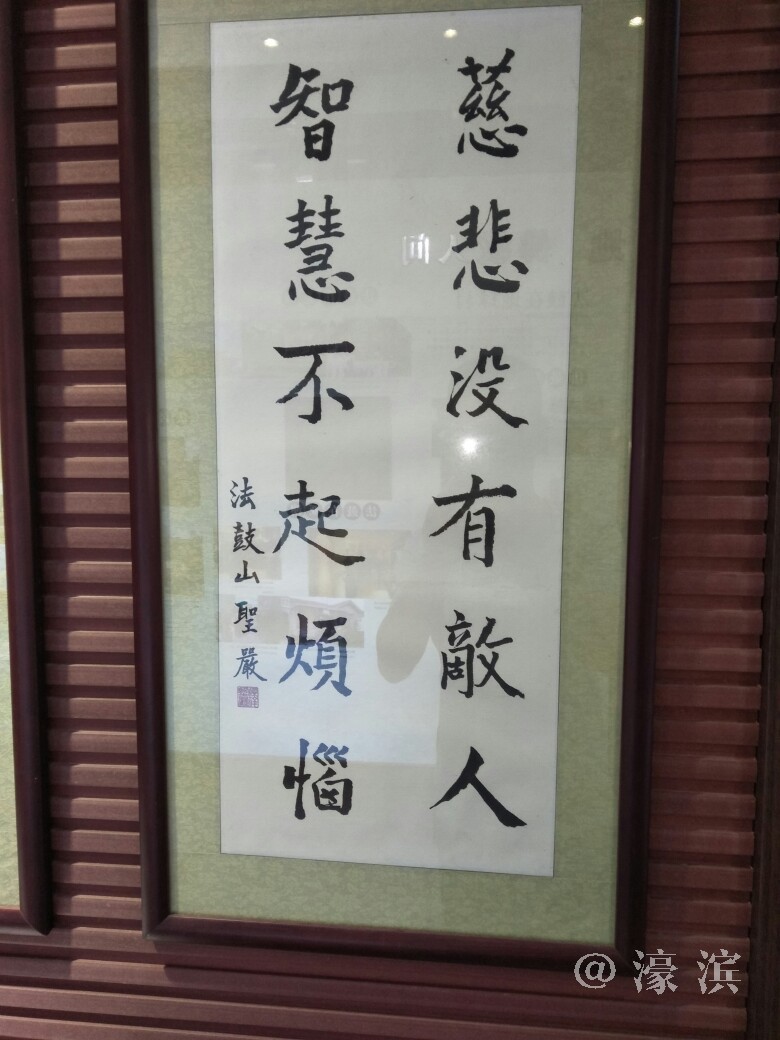 慈悲没有敵人
智慧不起煩惱
法鼓山聖嚴
@濠滨